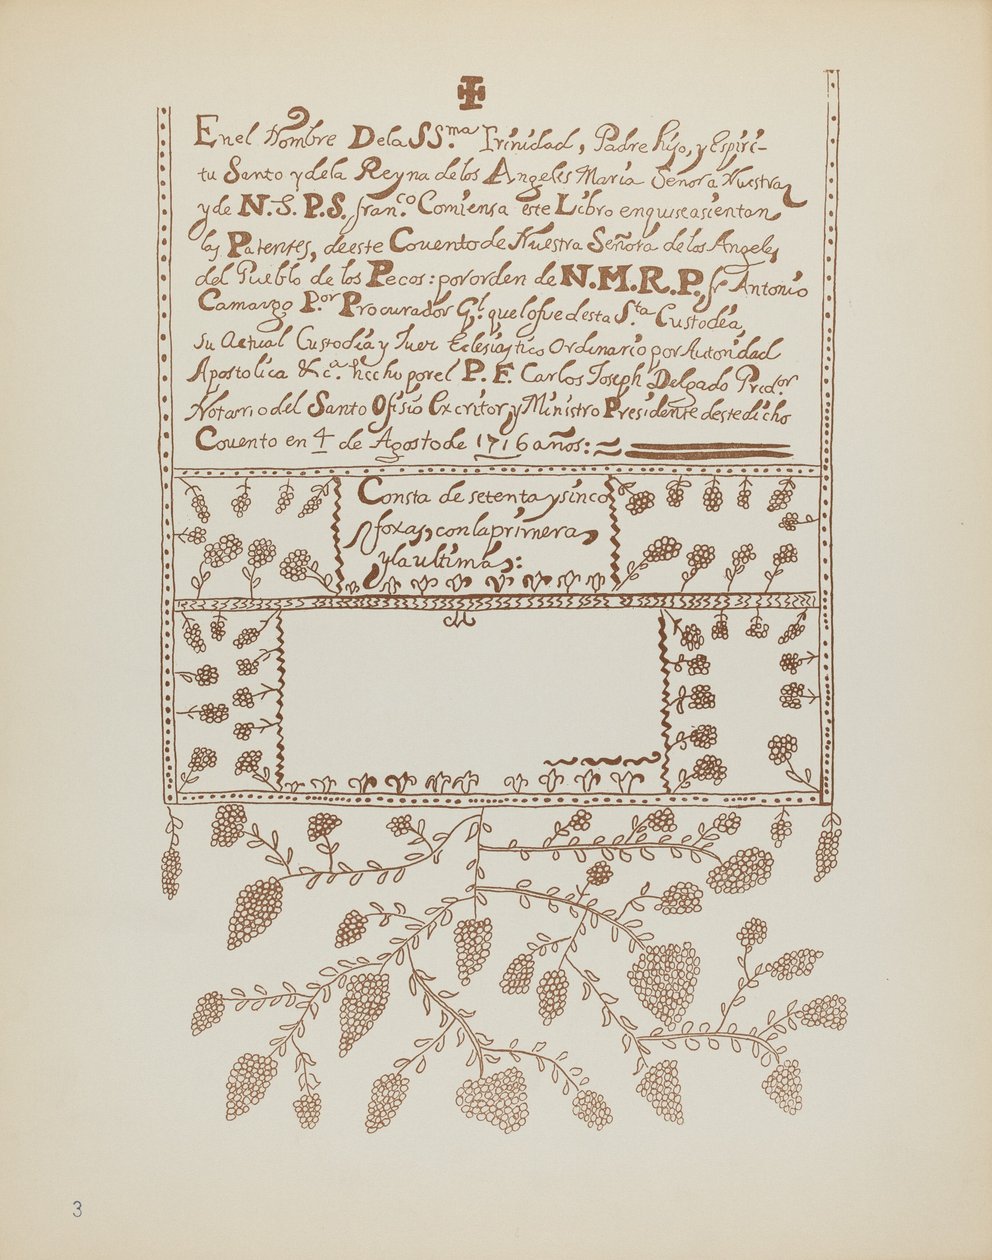 En el Nombre De la SS.ma Trinidad, Padre hijo, y Espiri-
tu Santo y de la Reyna de los Angeles Maria Señora Nuestra
y de N.S. P.S. fran.co Comiensa este Libro enquiseasientan
las Patentes, de este Couento de Nuestra Señora de los Angeles
del Pueblo de los Pecos: por orden de N.M.R.P. fr Antonio
Camargo P.or Procurador G.l que lo fue desta S.ta Custodia,
su Actual Custodia y Juez Eclesiastico Ordinario por Autoridad
Apostolica &c.a hecho por el P. F. Carlos Joseph Delgado Pred.or
Notario del Santo Ofisio Excritor, y Ministro Presidente deste dicho
Couento en 4 de Agosto de 1716 años:
Consta de setenta y sinco
foxas, con la primera
y la ultima:
3